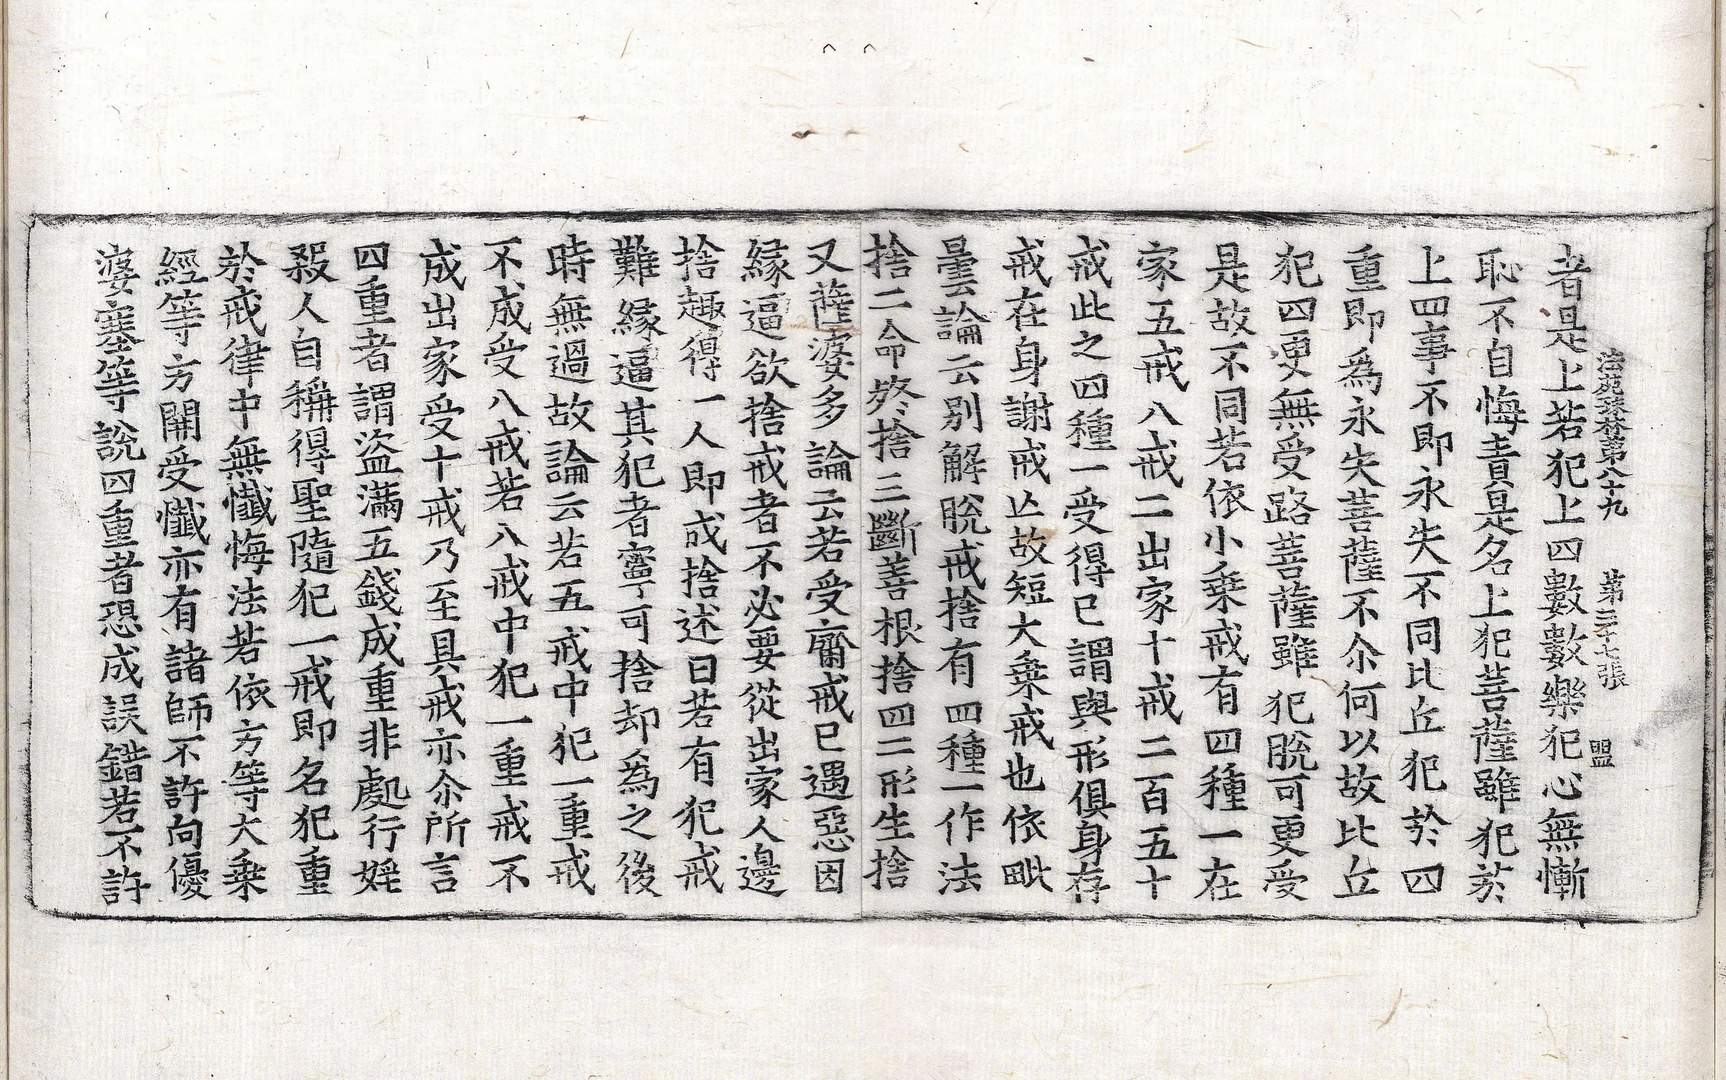 法苑珠林第八十九　第三十七張　盟
者是上若犯上四數數樂犯心無慚
恥不自悔責是名上犯菩薩雖犯於
上四事不即永失不同比丘犯於四
重即爲永失菩薩不尒何以故比丘
犯四更無受路菩薩雖犯脫可更受
是故不同若依小乘戒有四種一在
家五戒八戒二出家十戒二百五十
戒此之四種一受得已謂與形俱身存
戒在身謝戒亡故短大乘戒也依毗
曇論云别解脫戒捨有四種一作法
捨二命終捨三斷善根捨四二形生捨
又薩婆多論云若受齋戒已遇惡因
緣逼欲捨戒者不必要從出家人邊
捨趣得一人即成捨述曰若有犯戒
難緣逼其犯者寧可捨却爲之後
時無過故論云若五戒中犯一重戒
不成受八戒若八戒中犯一重戒不
成出家受十戒乃至具戒亦尒所言
四重者謂盜滿五錢成重非處行婬
殺人自稱得聖隨犯一戒即名犯重
於戒律中無懺悔法若依方等大乘
經等方開受懺亦有諸師不許向優
婆塞等說四重者恐成誤錯若不許